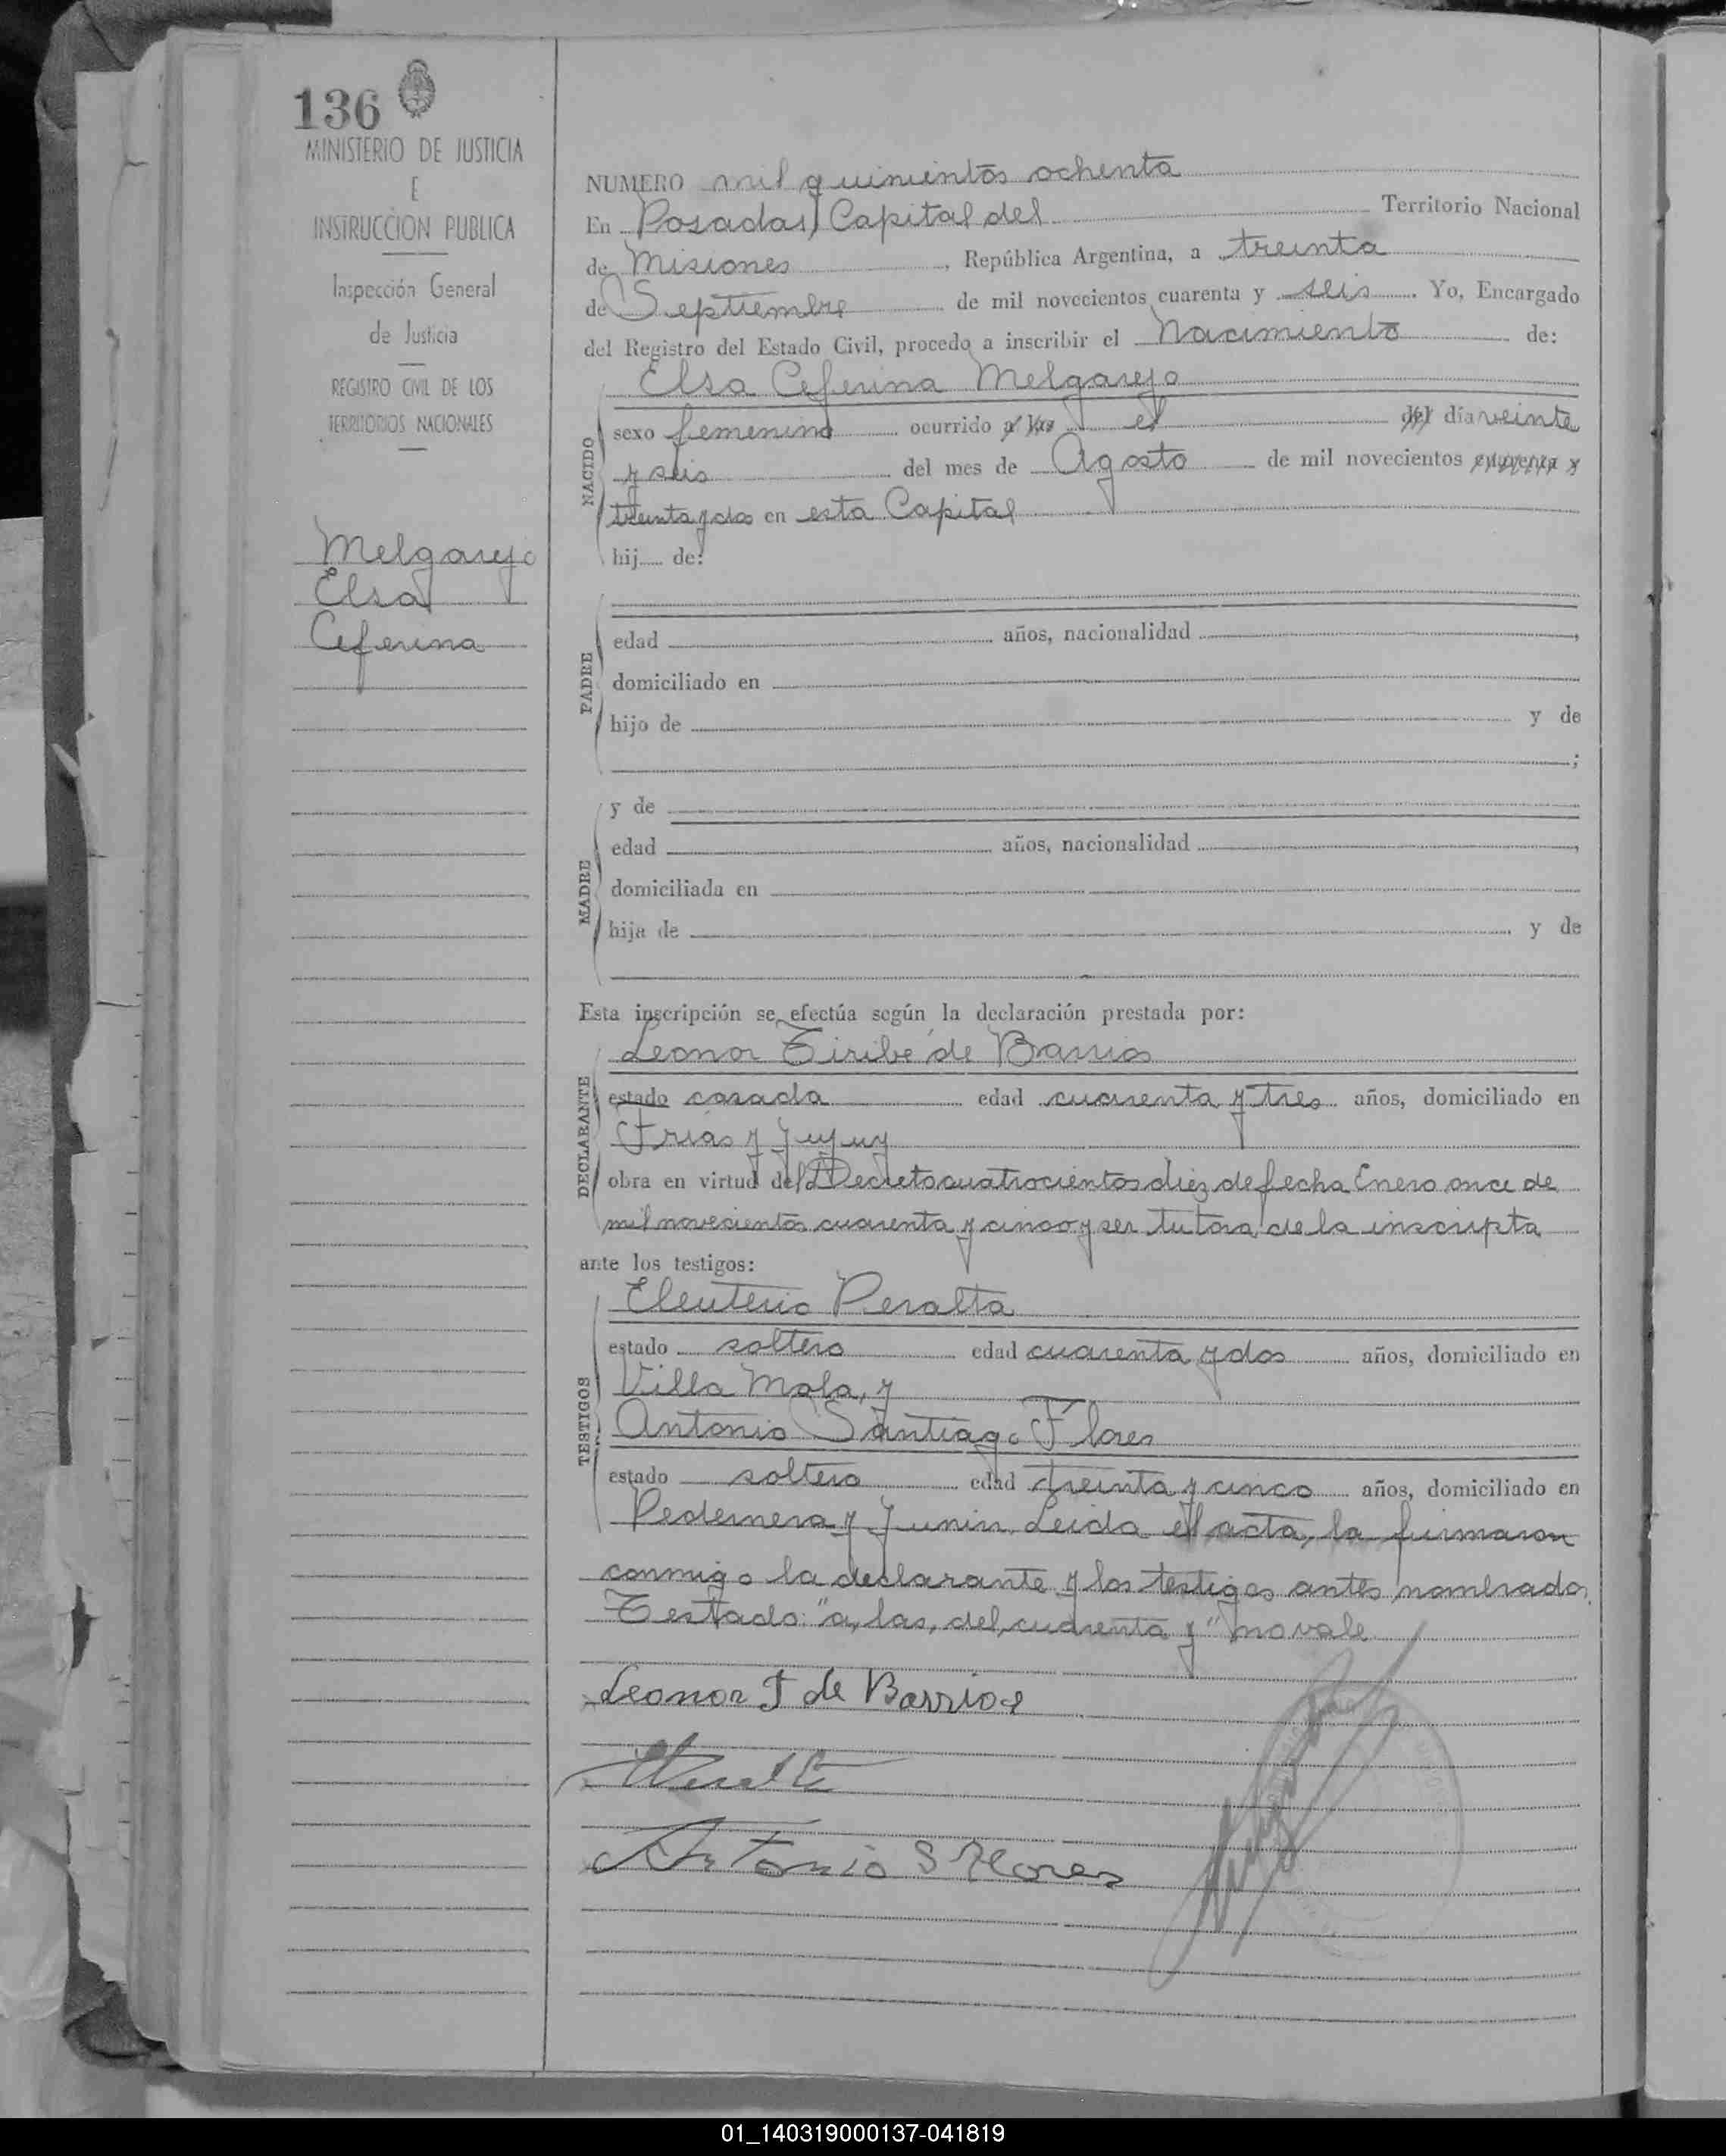 136
MINISTERIO DE JUSTICIA
E
INSTRUCCION PUBLICA
Inspección General
de Justicia
REGISTRO CIVIL DE LOS
TERRITORIOS NACIONALES
Melgarejo
Elsa
Ceferina
NUMERO mil quinientos ochenta
En Posadas, Capital del Territorio Nacional
de Misiones, República Argentina, a treinta
de Septiembre de mil novecientos cuarenta y seis. Yo, Encargado
del Registro del Estado Civil, procedo a inscribir el Nacimiento de:
Elsa Ceferina Melgarejo
NACIDO
sexo femenino ocurrido a las el del día veinte
y seis del mes de Agosto de mil novecientos cuarenta y
treinta y dos en esta Capital
hij de:
PADRE
edad años, nacionalidad ,
domiciliado en
hijo de y de
;
MADRE
y de
edad años, nacionalidad ,
domiciliada en
hija de y de
Esta inscripción se efectúa según la declaración prestada por:
DECLARANTE
Leonor Tiribé de Barrios
estado casada edad cuarenta y tres años, domiciliado en
Frias y Jujuy
obra en virtud del Decreto cuatrocientos diez de fecha Enero once de
mil novecientos cuarenta y cinco y ser tutora de la inscripta
ante los testigos:
TESTIGOS
Eleuterio Peralta
estado soltero edad cuarenta y dos años, domiciliado en
Villa Mola, y
Antonio Santiago Flores
estado soltero edad treinta y cinco años, domiciliado en
Pedernera y Junin. Leida el acta, la firmaron
conmigo la declarante y los testigos antes nombrados.
Testado: "a, las, del, cuarenta y" no vale
Leonor T de Barrios
Antonio S Flores
01_140319000137-041819